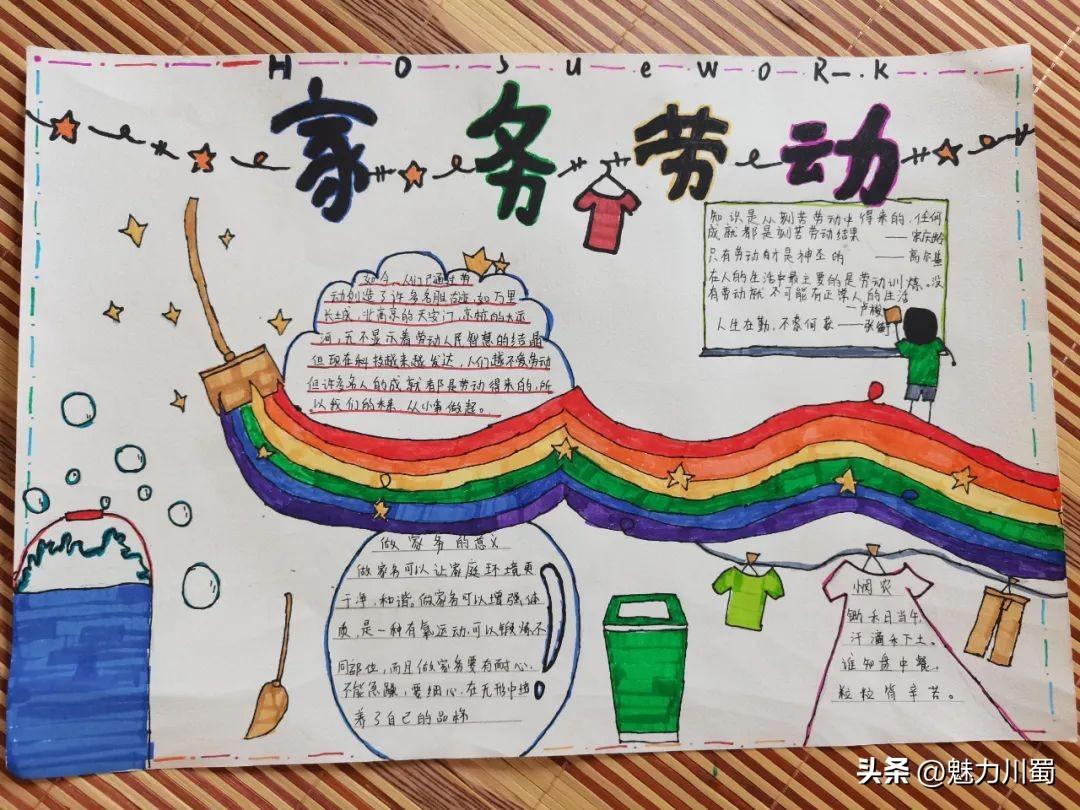 HOSUeWORK
家务劳动
知识是从刻苦劳动中得来的,任何
成就都是刻苦劳动结果 ——宋庆龄
只有劳动才是神圣的 ——高尔基
在人的生活中最主要的是劳动训练。没
有劳动就不可能有正常人的生活
——卢梭
人生在勤,不索何获——张衡
如今,人们已通过劳
动创造了许多名胜古迹,如万里
长城,北京的天安门,京杭的大运
河,无不显示着劳动人民智慧的结晶
但现在科技越来越发达,人们越不爱劳动
但许多名人的成就都是劳动得来的,所
以我们的未来,从小事做起。
做家务的意义
做家务可以让家庭环境更
干净,和谐。做家务可以增强体
质,是一种有氧运动,可以锻炼不
同部位,而且做家务要有耐心,
不能急躁,要细心,在无形中培
养了自己的品格
悯农
锄禾日当午,
汗滴禾下土。
谁知盘中餐,
粒粒皆辛苦。
头条 @魅力川蜀